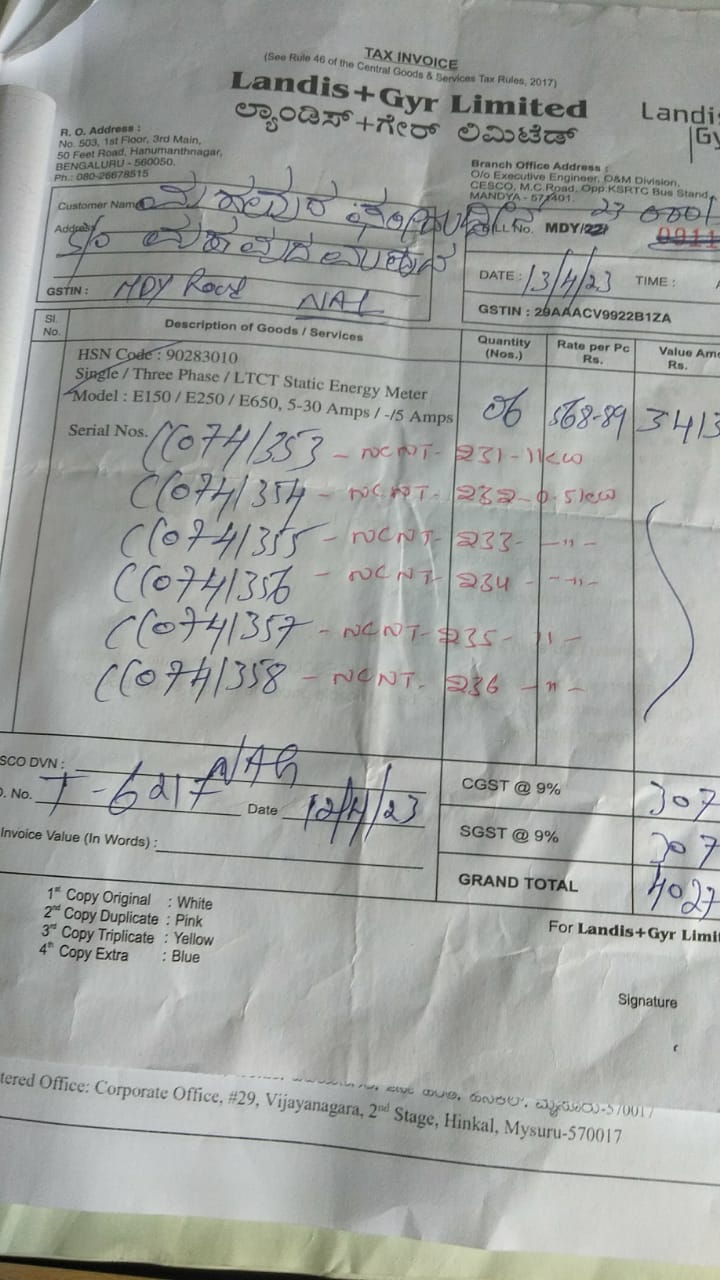 TAX INVOICE
(See Rule 46 of the Central Goods & Services Tax Rules, 2017)
Landis+Gyr Limited
ಲ್ಯಾಂಡಿಸ್+ಗೇರ್ ಲಿಮಿಟೆಡ್
Landis
Gy
R. O. Address :
No. 503, 1st Floor, 3rd Main,
50 Feet Road, Hanumanthnagar,
BENGALURU - 560050.
Ph.: 080-26678515
Branch Office Address :
O/o Executive Engineer, D&M Division,
CESCO, M.C.Road, Opp.KSRTC Bus Stand,
MANDYA - 571401.
Customer Name
Address
S/o
GSTIN : MDY Road NAL
No. MDY/22/ 23 0001
DATE : 13/4/23 TIME :
GSTIN : 29AAACV9922B1ZA
Sl. No. Description of Goods / Services Quantity (Nos.) Rate per Pc Rs. Value Am Rs.
HSN Code : 90283010
Single / Three Phase / LTCT Static Energy Meter
Model : E150 / E250 / E650, 5-30 Amps / -/5 Amps 06 568-89 3413
Serial Nos. CC0741353 - NCNT- 231-11KW
CC0741354 - NCNT- 232-0.5KW
CC0741355 - NCNT- 233- -"-
CC0741356 - NCNT- 234 - -"-
CC0741357 - NCNT- 235- 11 -
CC0741358 - NCNT- 236 -"-
SCO DVN : NAG
No. T-6217 Date 12/4/23
Invoice Value (In Words) :
CGST @ 9% 307
SGST @ 9% 307
GRAND TOTAL 4027
1st Copy Original : White
2nd Copy Duplicate : Pink
3rd Copy Triplicate : Yellow
4th Copy Extra : Blue
For Landis+Gyr Limi
Signature
tered Office: Corporate Office, #29, Vijayanagara, 2nd Stage, Hinkal, Mysuru-570017